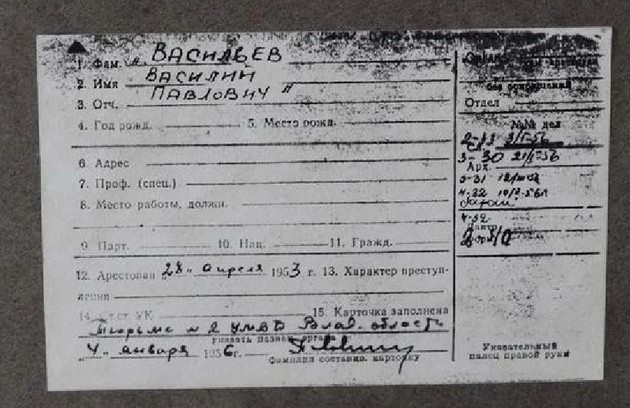 1. Фам. „ ВАСИЛЬЕВ
2. Имя ВАСИЛИЙ
3. Отч. ПАВЛОВИЧ "
4. Год рожд. 5. Место рожд.
6. Адрес
7. Проф. (спец.)
8. Место работы, должн.
9. Парт. 10. Нац. 11. Гражд.
12. Арестован „28" апреля 1953 г. 13. Характер преступ-
ления
14. Ст.ст УК 15. Карточка заполнена
Тюрьма № 2 УМВД Влад. области
указать назван. органа
4" января 1956 г.
Фамилия составив. карточку
Отдел
№№ дел
2-33 3/I-56
3-30 21/I-56
Арх.
3-31
4-32
4-32
2 40
Указательный
палец правой руки